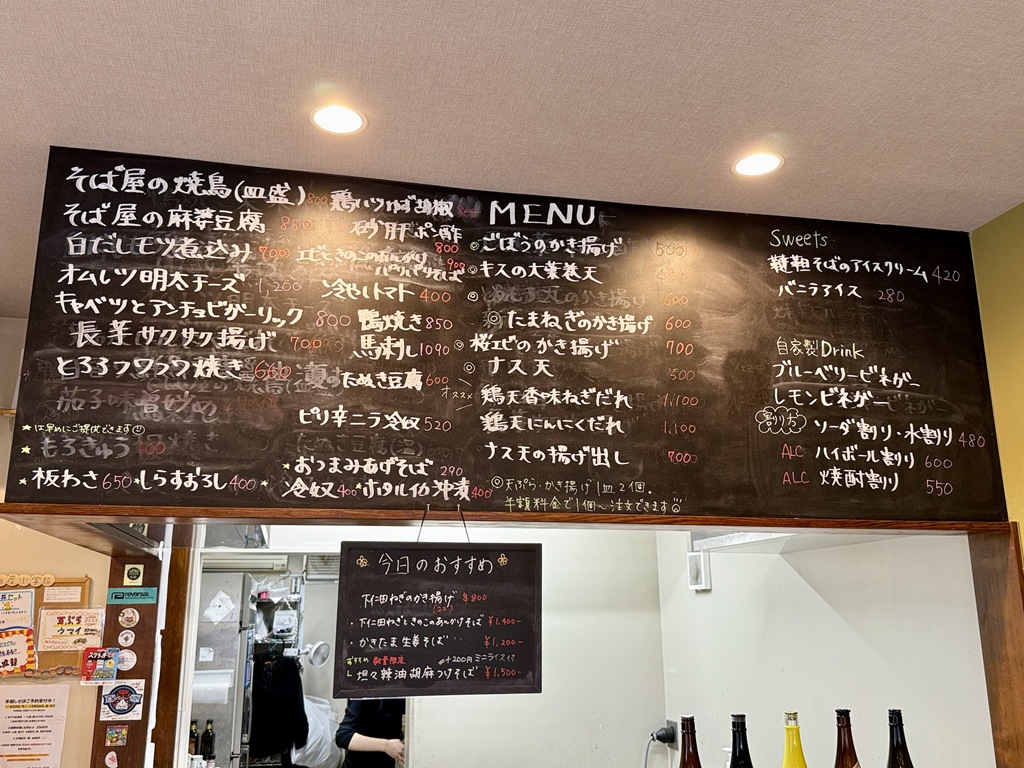 そば屋の焼鳥(皿盛) 800
そば屋の麻婆豆腐 850
白だしモツ煮込み 700
オムレツ明太チーズ 1,200
キャベツとアンチョビガーリック 800
長芋サクサク揚げ 700
とろろフワフワ焼き 600
★は早めにご提供できます
★もろきゅう 400
★板わさ 650
★しらすおろし 400
鶏ハツゆず胡椒
砂肝ポン酢 800
エビときのこのあんかけ
パリパリそば 900
冷やしトマト 400
鴨焼き 850
馬刺し 1090
たぬき豆腐 600
ピリ辛ニラ冷奴 520
★おつまみあげそば 290
★冷奴 400
★ホタルイカ沖漬 400
MENU
◎ごぼうのかき揚げ 500
◎キスの大葉巻天
◎たまねぎのかき揚げ 600
◎桜エビのかき揚げ 700
◎ナス天 500
オススメ 鶏天香味ねぎだれ 1,100
鶏天にんにくだれ 1,100
ナス天の揚げ出し 700
◎天ぷら・かき揚げ1皿2個。
半額料金で1個〜注文できます
Sweets
韃靼そばのアイスクリーム 420
バニラアイス 280
自家製Drink
ブルーベリービネガー
レモンビネガー
割り方
ソーダ割り・水割り 480
ALC ハイボール割り 600
ALC 焼酎割り 550
今日のおすすめ
下仁田ねぎのかき揚げ ¥800
(2コ)
・下仁田ねぎときのこのあんかけそば ¥1.400-
・かきたま生姜そば… ¥1.200-
おすすめ 数量限定 +200円ミニライス付
坦々辣油胡麻つけそば ¥1.500-
reversal
天ぷら
ウマイ
スタラリ